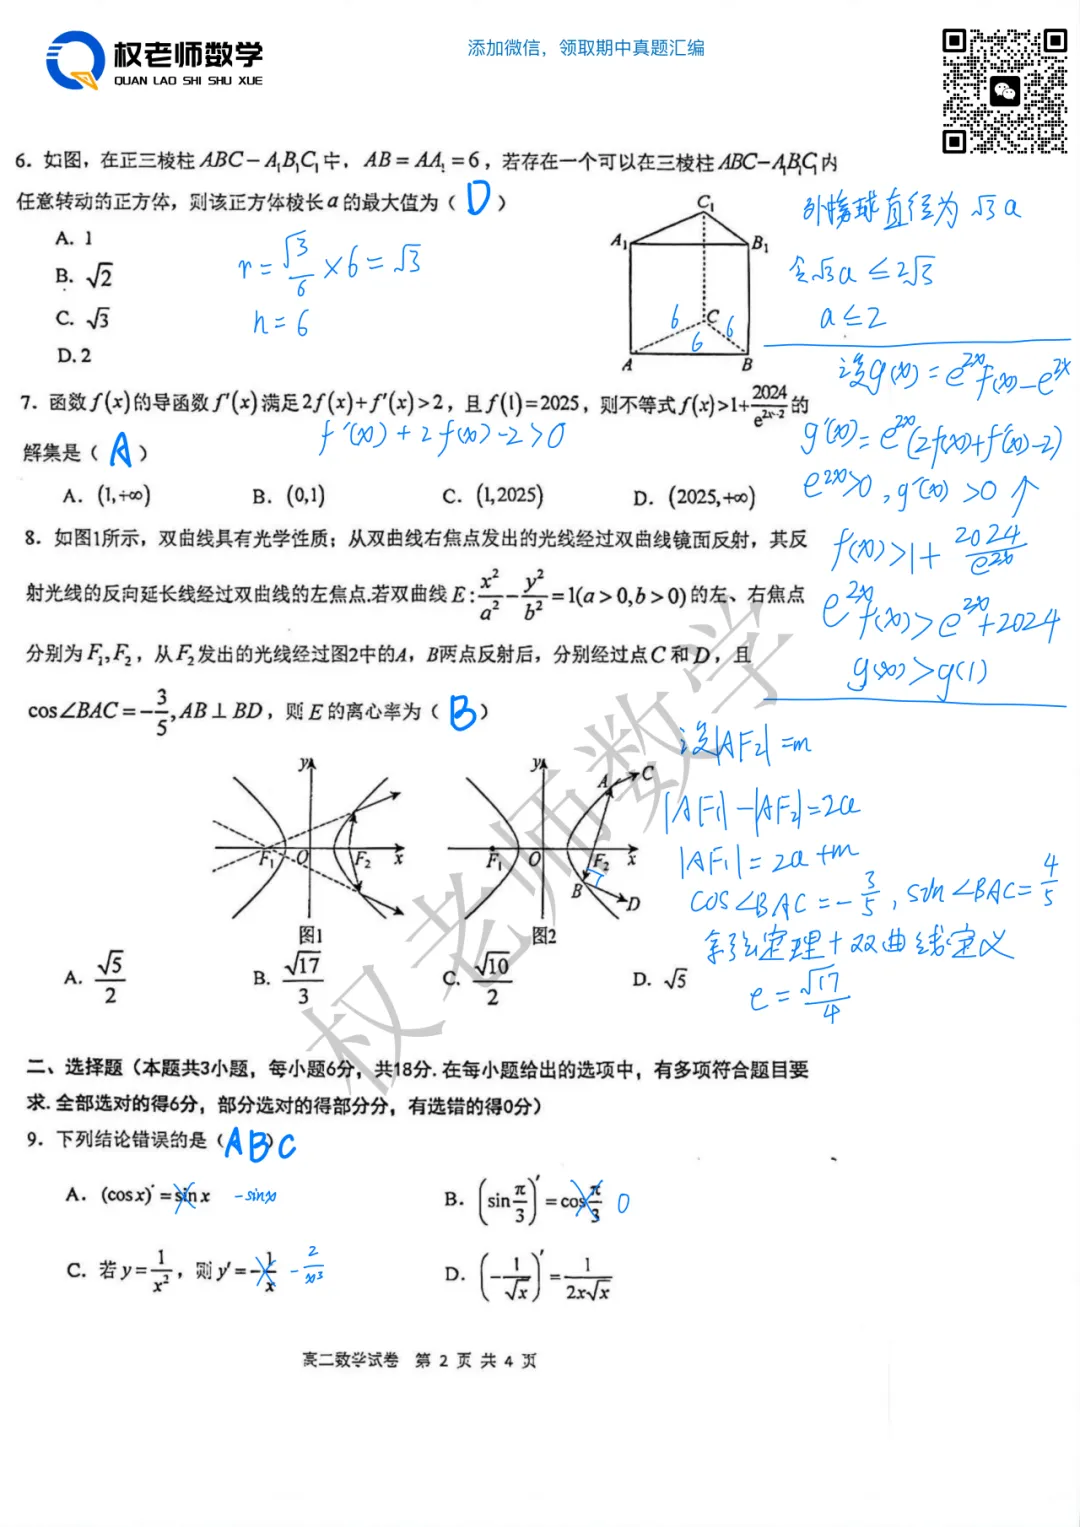 权老师数学
QUAN LAO SHI SHU XUE
添加微信，领取期中真题汇编
6. 如图，在正三棱柱 ABC－A₁B₁C₁ 中，AB＝AA₁＝6，若存在一个可以在三棱柱 ABC－A₁B₁C₁ 内
任意转动的正方体，则该正方体棱长 a 的最大值为（ D ）
A. 1
B. √2
C. √3
D. 2
r = √3/6 × 6 = √3
h = 6
C₁
A₁
B₁
C
A
B
6
6
6
外接球直径为 √3 a
令 √3 a ≤ 2√3
a ≤ 2
7. 函数 f(x) 的导函数 f′(x) 满足 2f(x)+f′(x)>2，且 f(1)=2025，则不等式 f(x)>1+2024/e^(2x-2) 的
解集是（ A ）
f′(x)+2f(x)-2>0
A. (1,+∞)
B. (0,1)
C. (1,2025)
D. (2025,+∞)
设g(x)=e^(2x)f(x)-e^(2x)
g′(x)=e^(2x)(2f(x)+f′(x)-2)
e^(2x)>0, g′(x)>0 ↑
f(x)>1+2024/e^(2x)
e^(2x)f(x)>e^(2x)+2024
g(x)>g(1)
8. 如图1所示，双曲线具有光学性质：从双曲线右焦点发出的光线经过双曲线镜面反射，其反
射光线的反向延长线经过双曲线的左焦点.若双曲线 E: x²/a² - y²/b² =1(a>0,b>0) 的左、右焦点
分别为 F₁,F₂，从 F₂ 发出的光线经过图2中的A，B两点反射后，分别经过点 C 和 D，且
cos∠BAC=-3/5, AB⊥BD，则 E 的离心率为（ B ）
y
F₁
O
F₂
x
图1
y
A
C
F₁
O
F₂
x
B
D
图2
A. √5/2
B. √17/3
C. √10/2
D. √5
设|AF₂|=m
|AF₁|-|AF₂|=2a
|AF₁|=2a+m
cos∠BAC=-3/5, sin∠BAC=4/5
余弦定理+双曲线定义
e=√17/4
二、选择题（本题共3小题，每小题6分，共18分.在每小题给出的选项中，有多项符合题目要
求.全部选对的得6分，部分选对的得部分分，有选错的得0分）
9. 下列结论错误的是（ABC）
A. (cosx)′=sinx -sinx
B. (sin π/3)′=cos π/3 0
C. 若 y=1/x²，则 y′=-1/x -2/x³
D. (-1/√x)′=1/(2x√x)
高二数学试卷 第 2 页 共 4 页
权老师数学